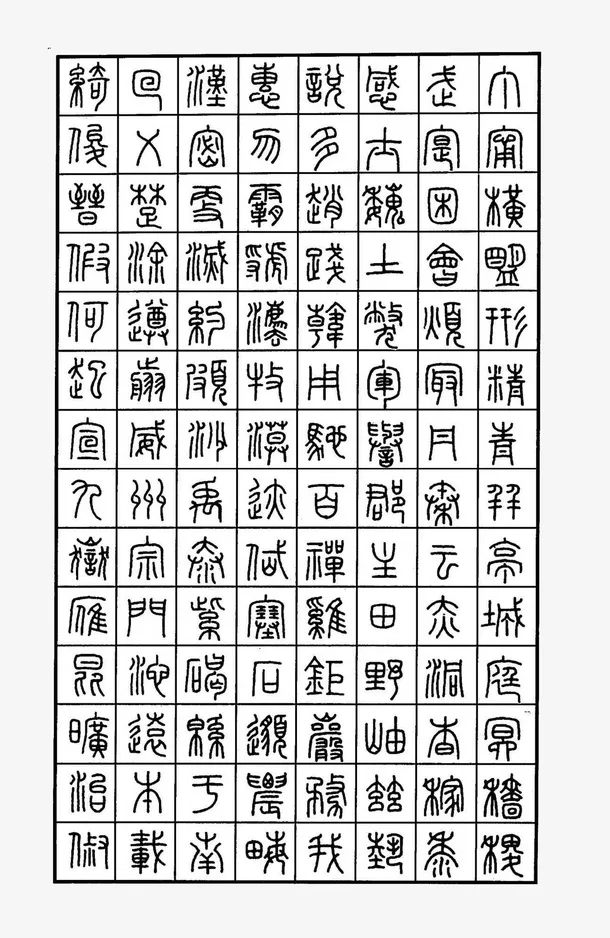 綺回漢惠說感武丁
俊乂密勿多士寔甯
晉楚更霸趙魏困橫
假涂滅虢踐土會盟
何遵約灋韓弊煩形
起翦頗牧用軍冣精
宣威沙漠馳譽丹青
九州禹迹百郡秦并
嶽宗泰岱禪主云亭
雁門紫塞雞田赤城
昆池碣石鉅野洞庭
曠遠緜邈巖岫杳冥
治本于農務茲稼穡
俶載南畮我埶黍稷